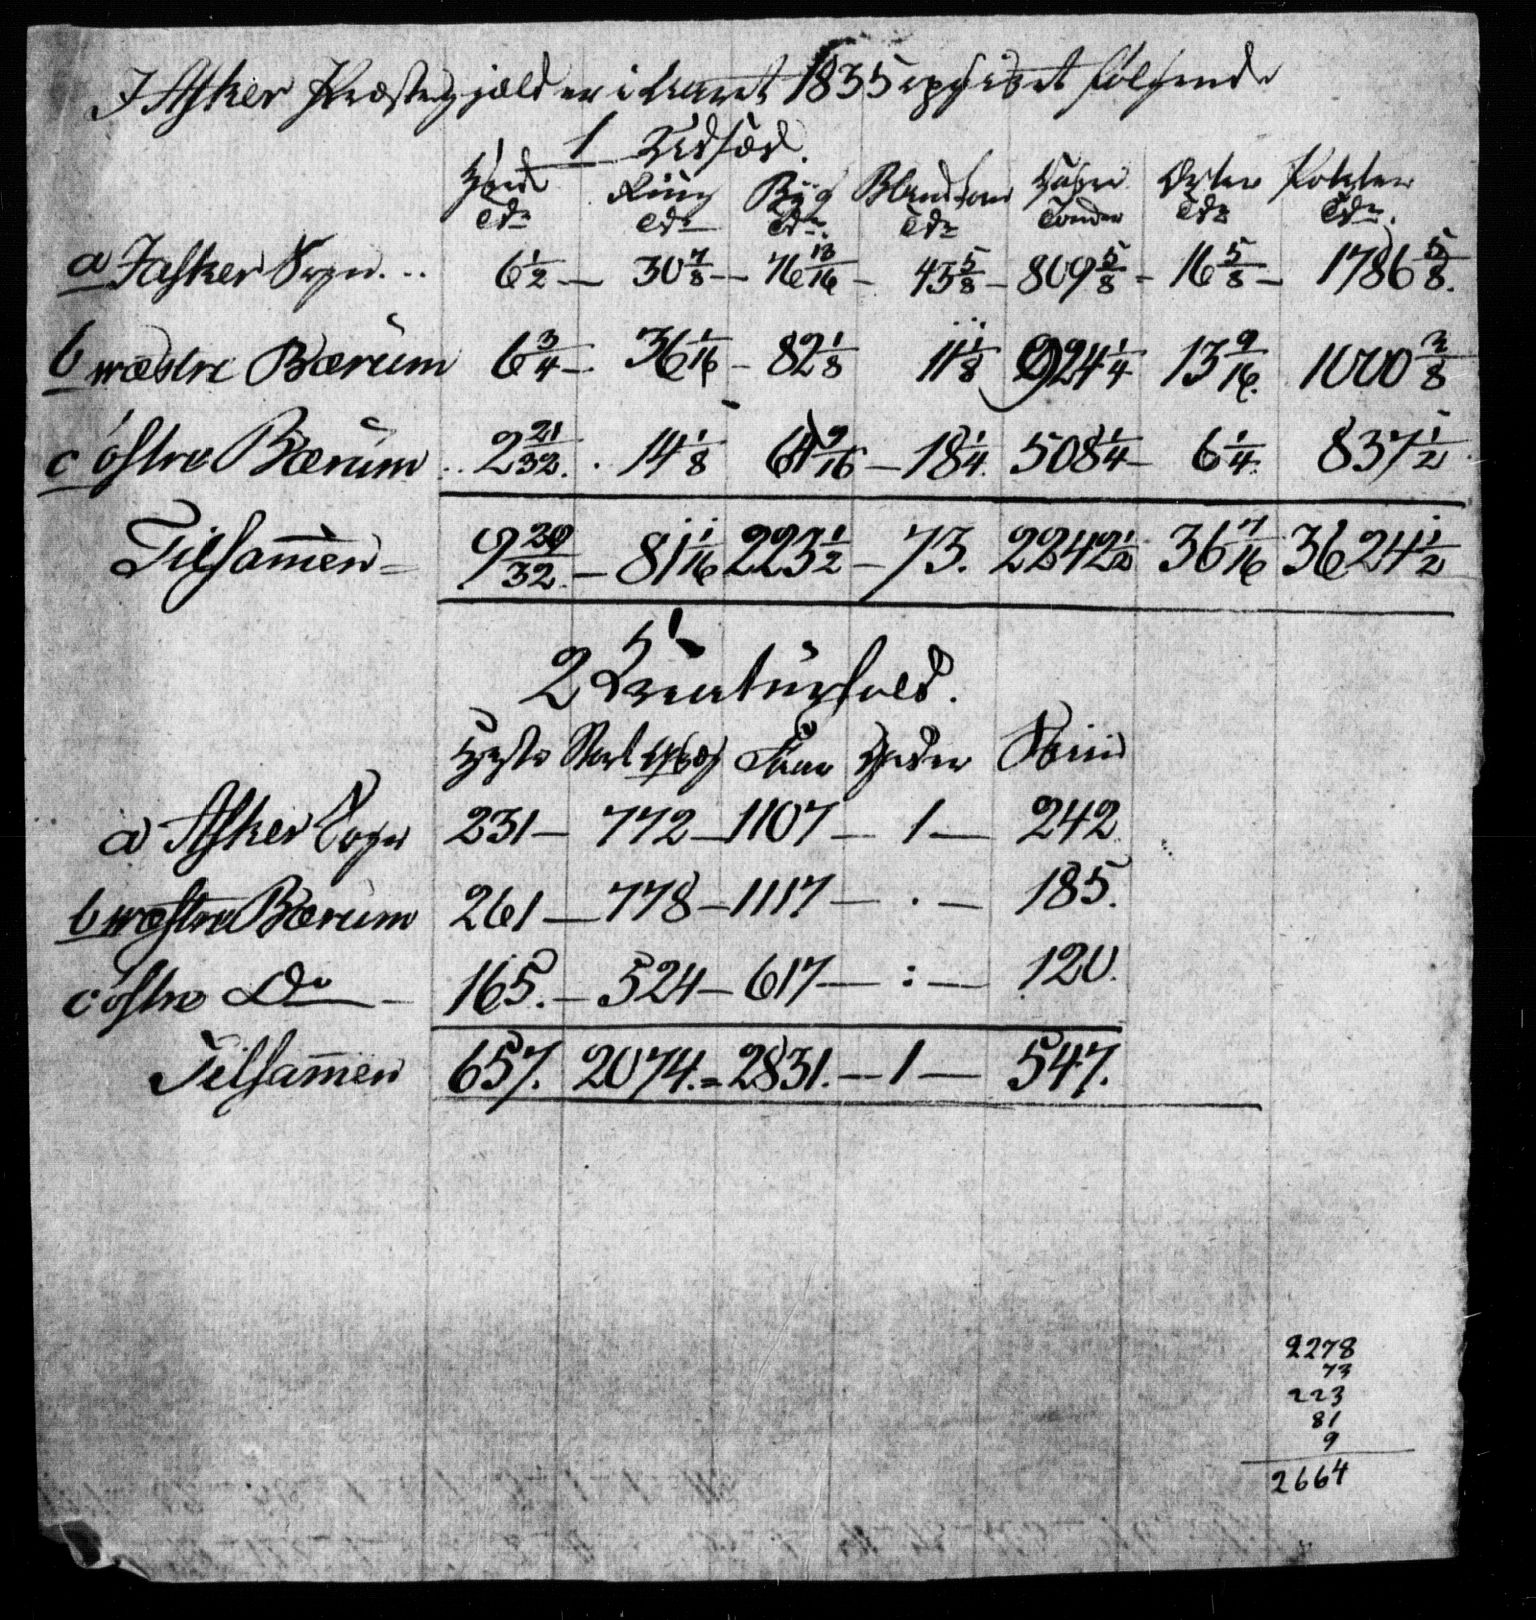 I Asker Præstegjæld er i Aaret 1835 opgivet følgende
1 Udsæd.
Hvede Rüug Byg Blandkorn Havre Erter Poteter
Tdr Tdr Tdr. Tdr Tønder Tdr Tdr.
a I Asker Sogn... 6 1/2 — 30 7/8 — 76 13/16 — 43 5/8 — 809 5/8 - 16 5/8 — 1786 5/8.
b wæstre Bærum 6 3/4 —. 36 1/16 — 82 1/8 11 1/8 924 1/4 13 9/16. 1000 3/8
c østre Bærum .. 2 21/32. . 14 1/8 64 9/16 — 18 1/4. 508 1/4 — 6 1/4. 837 1/2
Tilsam̄en = 9 29/32 — 81 1/16 223 1/2 — 73. 2242 1/2 36 7/16 3624 1/2
2 Kreaturhold.
Heste Stort Qvæg Faar Geder Sviin
a Asker Sogn 231 — 772 — 1107 — 1 — 242
b wæstre Bærum 261 — 778 — 1117 — . — 185.
c østre Do — 165. — 524 — 617 — : — 120.
Tilsam̄en 657. 2074. = 2831. — 1 — 547.
2278
73
223
81
9
2664